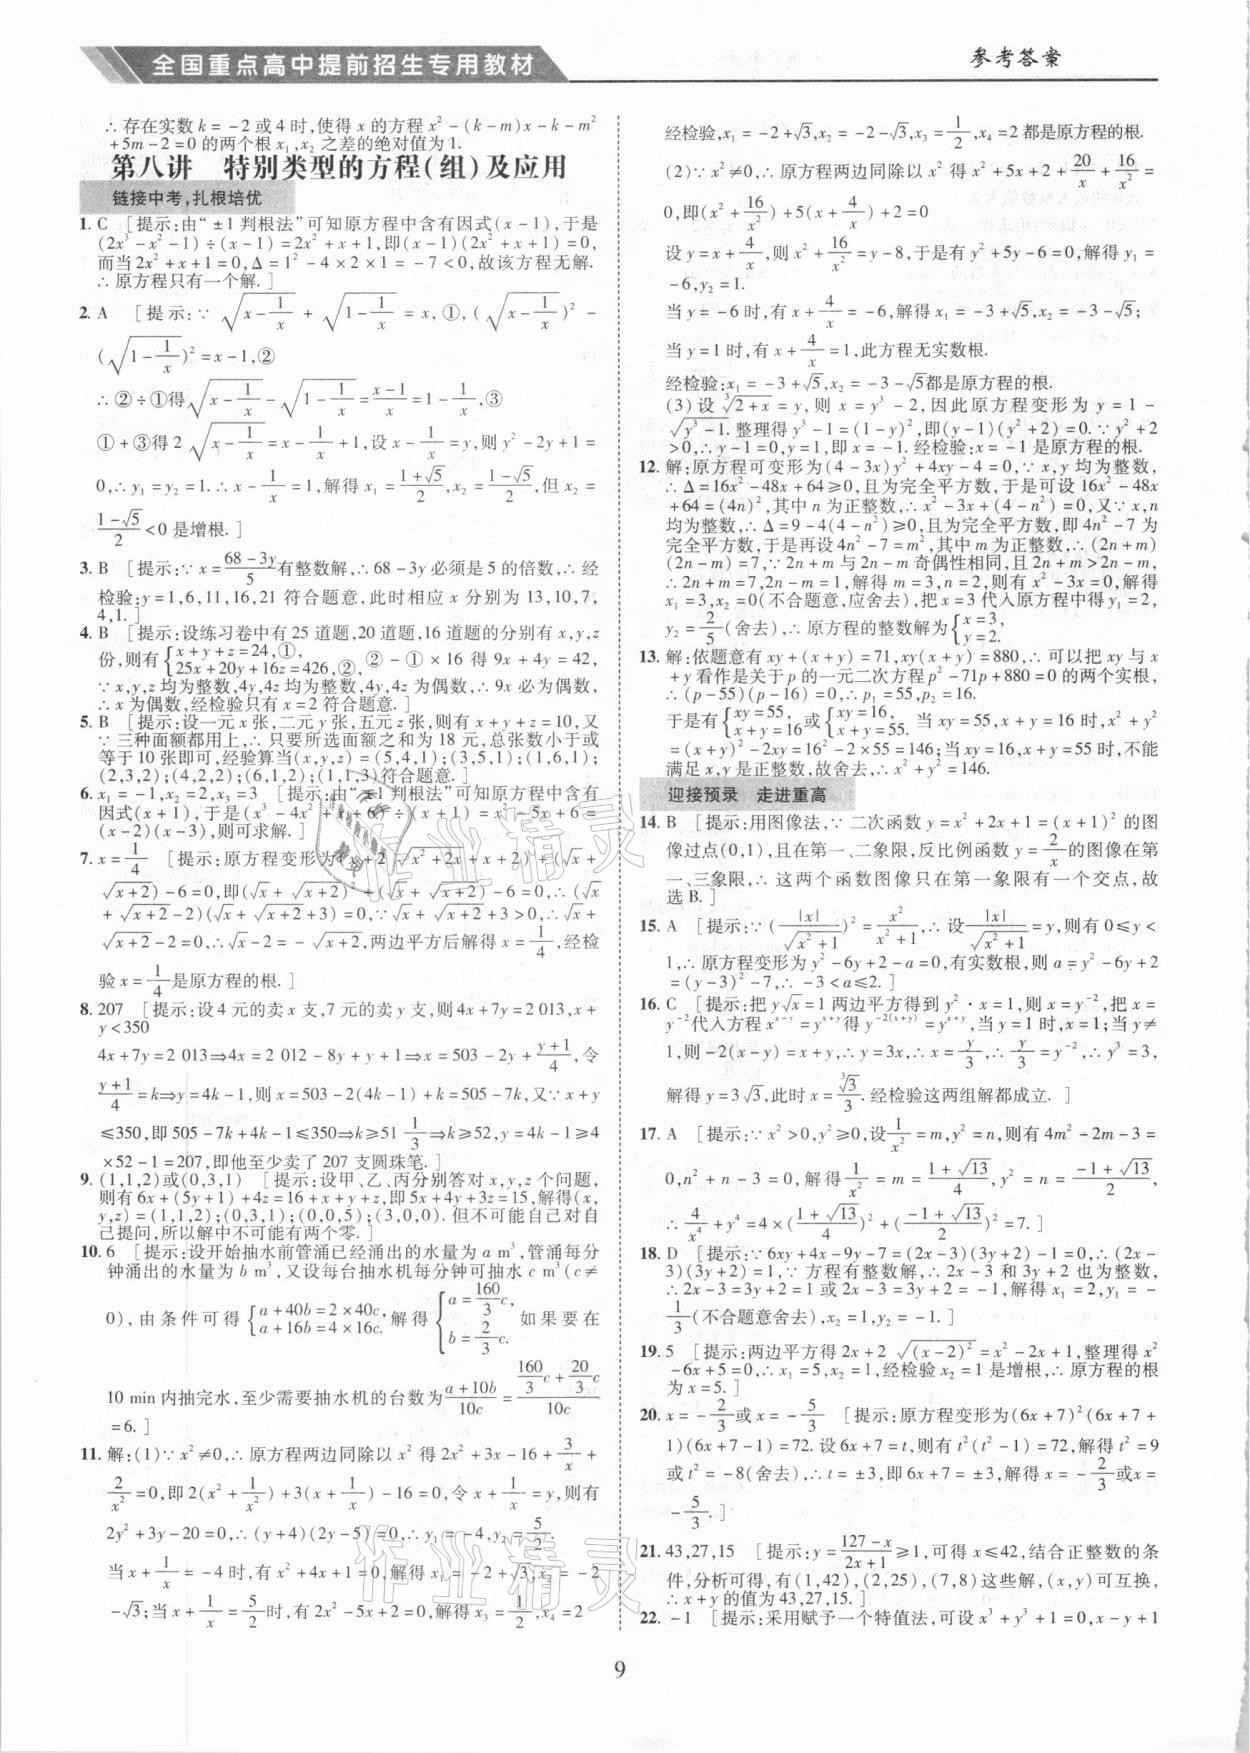 全国重点高中提前招生专用教材
参考答案
∴存在实数k=-2或4时,使得x的方程x²-(k-m)x-k-m²
+5m-2=0的两个根x₁,x₂之差的绝对值为1.
第八讲 特别类型的方程(组)及应用
链接中考,扎根培优
1. C [提示:由“±1判根法”可知原方程中含有因式(x-1),于是
(2x³-x²-1)÷(x-1)=2x²+x+1,即(x-1)(2x²+x+1)=0,
而当2x²+x+1=0,Δ=1²-4×2×1=-7<0,故该方程无解.
∴原方程只有一个解.]
2. A [提示:∵√(x-1/x)+√(1-1/x)=x,①,(√(x-1/x))²-
(√(1-1/x))²=x-1,②
∴②÷①得√(x-1/x)-√(1-1/x)=(x-1)/x=1-1/x,③
①+③得2√(x-1/x)=x-1/x+1,设x-1/x=y,则y²-2y+1=
0,∴y₁=y₂=1.∴x-1/x=1,解得x₁=(1+√5)/2,x₂=(1-√5)/2,但x₂=
(1-√5)/2<0是增根.]
3. B [提示:∵x=(68-3y)/5有整数解,∴68-3y必须是5的倍数,∴经
检验:y=1,6,11,16,21符合题意,此时相应x分别为13,10,7,
4,1.]
4. B [提示:设练习卷中有25道题,20道题,16道题的分别有x,y,z
份,则有{x+y+z=24,①, 25x+20y+16z=426,②, ②-①×16得9x+4y=42,
∵x,y,z均为整数,4y,4z均为整数,4y,4z为偶数,∴9x必为偶数,
∴x为偶数,经检验只有x=2符合题意.]
5. B [提示:设一元x张,二元y张,五元z张,则有x+y+z=10,又
∵三种面额都用上,∴只要所选面额之和为18元,总张数小于或
等于10张即可,经验算当(x,y,z)=(5,4,1);(3,5,1);(1,6,1);
(2,3,2);(4,2,2);(6,1,2);(1,1,3)符合题意.]
6. x₁=-1,x₂=2,x₃=3 [提示:由“±1判根法”可知原方程中含有
因式(x+1),于是(x³-4x²+x+6)÷(x+1)=x²-5x+6=
(x-2)(x-3),则可求解.]
7. x=1/4 [提示:原方程变形为(x+2√(x²+2x)+x+2)+(√x+
√(x+2))-6=0,即(√x+√(x+2))²+(√x+√(x+2))-6=0,∴(√x
+√(x+2)-2)(√x+√(x+2)+3)=0,∵√x+√(x+2)+3>0,∴√x+
√(x+2)-2=0,∴√x-2=-√(x+2),两边平方后解得x=1/4,经检
验x=1/4是原方程的根.]
8. 207 [提示:设4元的卖x支,7元的卖y支,则4x+7y=2 013,x+
y<350
4x+7y=2 013⇒4x=2 012-8y+y+1⇒x=503-2y+(y+1)/4,令
(y+1)/4=k⇒y=4k-1,则x=503-2(4k-1)+k=505-7k,又∵x+y
≤350,即505-7k+4k-1≤350⇒k≥51 1/3⇒k≥52,y=4k-1≥4
×52-1=207,即他至少卖了207支圆珠笔.]
9. (1,1,2)或(0,3,1) [提示:设甲、乙、丙分别答对x,y,z个问题,
则有6x+(5y+1)+4z=16+x+y+z,即5x+4y+3z=15,解得(x,
y,z)=(1,1,2);(0,3,1);(0,0,5);(3,0,0).但不可能自己对自
己提问,所以解中不可能有两个零.]
10. 6 [提示:设开始抽水前管涌已经涌出的水量为a m³,管涌每分
钟涌出的水量为b m³,又设每台抽水机每分钟可抽水c m³(c≠
0),由条件可得{a+40b=2×40c, a+16b=4×16c.解得{a=160/3 c, b=2/3 c.如果要在
10 min内抽完水,至少需要抽水机的台数为(a+10b)/10c=(160/3 c+20/3 c)/10c
=6.]
11. 解:(1)∵x²≠0,∴原方程两边同除以x²得2x²+3x-16+3/x+
2/x²=0,即2(x²+1/x²)+3(x+1/x)-16=0,令x+1/x=y,则有
2y²+3y-20=0,∴(y+4)(2y-5)=0.∴y₁=-4,y₂=5/2.
当x+1/x=-4时,有x²+4x+1=0,解得x₁=-2+√3,x₂=-2
-√3;当x+1/x=5/2时,有2x²-5x+2=0,解得x₃=1/2,x₄=2
经检验,x₁=-2+√3,x₂=-2-√3,x₃=1/2,x₄=2都是原方程的根.
(2)∵x²≠0,∴原方程两边同除以x²得x²+5x+2+20/x+16/x²
=0,即(x²+16/x²)+5(x+4/x)+2=0
设y=x+4/x,则x²+16/x²=y-8,于是有y²+5y-6=0,解得y₁=
-6,y₂=1.
当y=-6时,有x+4/x=-6,解得x₁=-3+√5,x₂=-3-√5;
当y=1时,有x+4/x=1,此方程无实数根.
经检验:x₁=-3+√5,x₂=-3-√5都是原方程的根.
(3)设∛(2+x)=y,则x=y³-2,因此原方程变形为y=1-
√(y³-1).整理得y³-1=(1-y)²,即(y-1)(y²+2)=0.∵y²+2
>0,∴y-1=0,y=1,即x=-1.经检验:x=-1是原方程的根.
12. 解:原方程可变形为(4-3x)y²+4xy-4=0,∵x,y均为整数,
∴Δ=16x²-48x+64≥0,且为完全平方数,于是可设16x²-48x
+64=(4n)²,其中n为正整数,∴x²-3x+(4-n²)=0,又∵x,n
均为整数,∴Δ=9-4(4-n²)≥0,且为完全平方数,即4n²-7为
完全平方数,于是再设4n²-7=m²,其中m为正整数,∴(2n+m)
(2n-m)=7,∵2n+m与2n-m奇偶性相同,且2n+m>2n-m,
∴2n+m=7,2n-m=1,解得m=3,n=2,则有x²-3x=0,解得
x₁=3,x₂=0(不合题意,应舍去),把x=3代入原方程中得y₁=2,
y₂=2/5(舍去),∴原方程的整数解为{x=3, y=2.
13. 解:依题意有xy+(x+y)=71,xy(x+y)=880,∴可以把xy与x
+y看作是关于p的一元二次方程p²-71p+880=0的两个实根,
∴(p-55)(p-16)=0,∴p₁=55,p₂=16.
于是有{xy=55, x+y=16或{xy=16, x+y=55. 当xy=55,x+y=16时,x²+y²
=(x+y)²-2xy=16²-2×55=146;当xy=16,x+y=55时,不能
满足x,y是正整数,故舍去,∴x²+y²=146.
迎接预录 走进重高
14. B [提示:用图像法,∵二次函数y=x²+2x+1=(x+1)²的图
像过点(0,1),且在第一、二象限,反比例函数y=2/x的图像在第
一、三象限,∴这两个函数图像只在第一象限有一个交点,故
选B.]
15. A [提示:∵(|x|/√(x²+1))²=x²/(x²+1),∴设|x|/√(x²+1)=y,则有0≤y<
1,∴原方程变形为y²-6y+2-a=0,有实数根,则a=y²-6y+2
=(y-3)²-7,∴-3<a≤2.]
16. C [提示:把y√x=1两边平方得到y²·x=1,则x=y⁻²,把x=
y⁻²代入方程x^(x-y)=y^(x+y)得y^(-2(x+y))=y^(x+y),当y=1时,x=1;当y≠
1,则-2(x-y)=x+y,∴y=3x,∴x=y/3,∴y/3=y⁻²,∴y³=3,
解得y=3√3,此时x=∛3/3.经检验这两组解都成立.]
17. A [提示:∵x²>0,y²≥0,设1/x²=m,y²=n,则有4m²-2m-3=
0,n²+n-3=0,解得1/x²=m=(1+√13)/4,y²=n=(-1+√13)/2,
∴4/x⁴+y⁴=4×((1+√13)/4)²+((-1+√13)/2)²=7.]
18. D [提示:∵6xy+4x-9y-7=(2x-3)(3y+2)-1=0,∴(2x-
3)(3y+2)=1,∵方程有整数解,∴2x-3和3y+2也为整数,
∴2x-3=3y+2=1或2x-3=3y+2=-1,解得x₁=2,y₁=-
1/3(不合题意舍去),x₂=1,y₂=-1.]
19. 5 [提示:两边平方得2x+2√((x-2)²)=x²-2x+1,整理得x²
-6x+5=0,∴x₁=5,x₂=1,经检验x=1是增根,∴原方程的根
为x=5.]
20. x=-2/3或x=-5/3 [提示:原方程变形为(6x+7)²(6x+7+
1)(6x+7-1)=72.设6x+7=t,则有t²(t²-1)=72,解得t²=9
或t²=-8(舍去),∴t=±3,即6x+7=±3,解得x=-2/3或x=
-5/3.]
21. 43,27,15 [提示:y=(127-x)/(2x+1)≥1,可得x≤42,结合正整数的条
件,分析可得,有(1,42),(2,25),(7,8)这些解,(x,y)可互换,
∴x+y的值为43,27,15.]
22. -1 [提示:采用赋予一个特值法,可设x³+y³+1=0,x-y+1
9
作业精灵
作业精灵